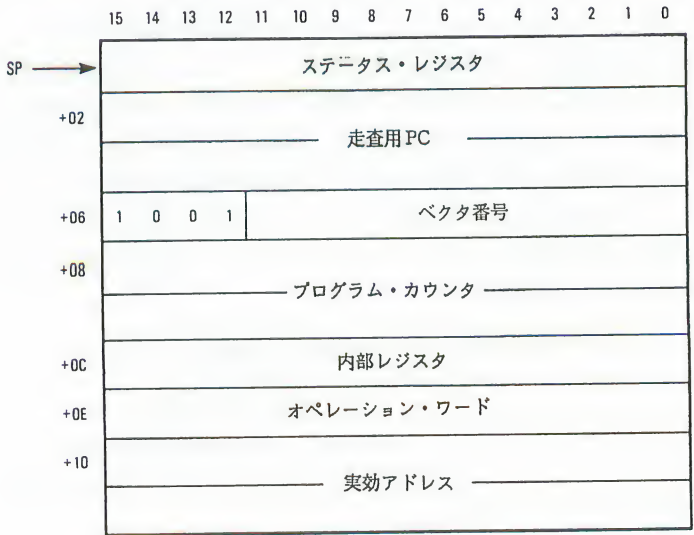 15 14 13 12 11 10 9 8 7 6 5 4 3 2 1 0
SP ステータス・レジスタ
+02 走査用PC
+06 1 0 0 1 ベクタ番号
+08 プログラム・カウンタ
+0C 内部レジスタ
+0E オペレーション・ワード
+10 実効アドレス